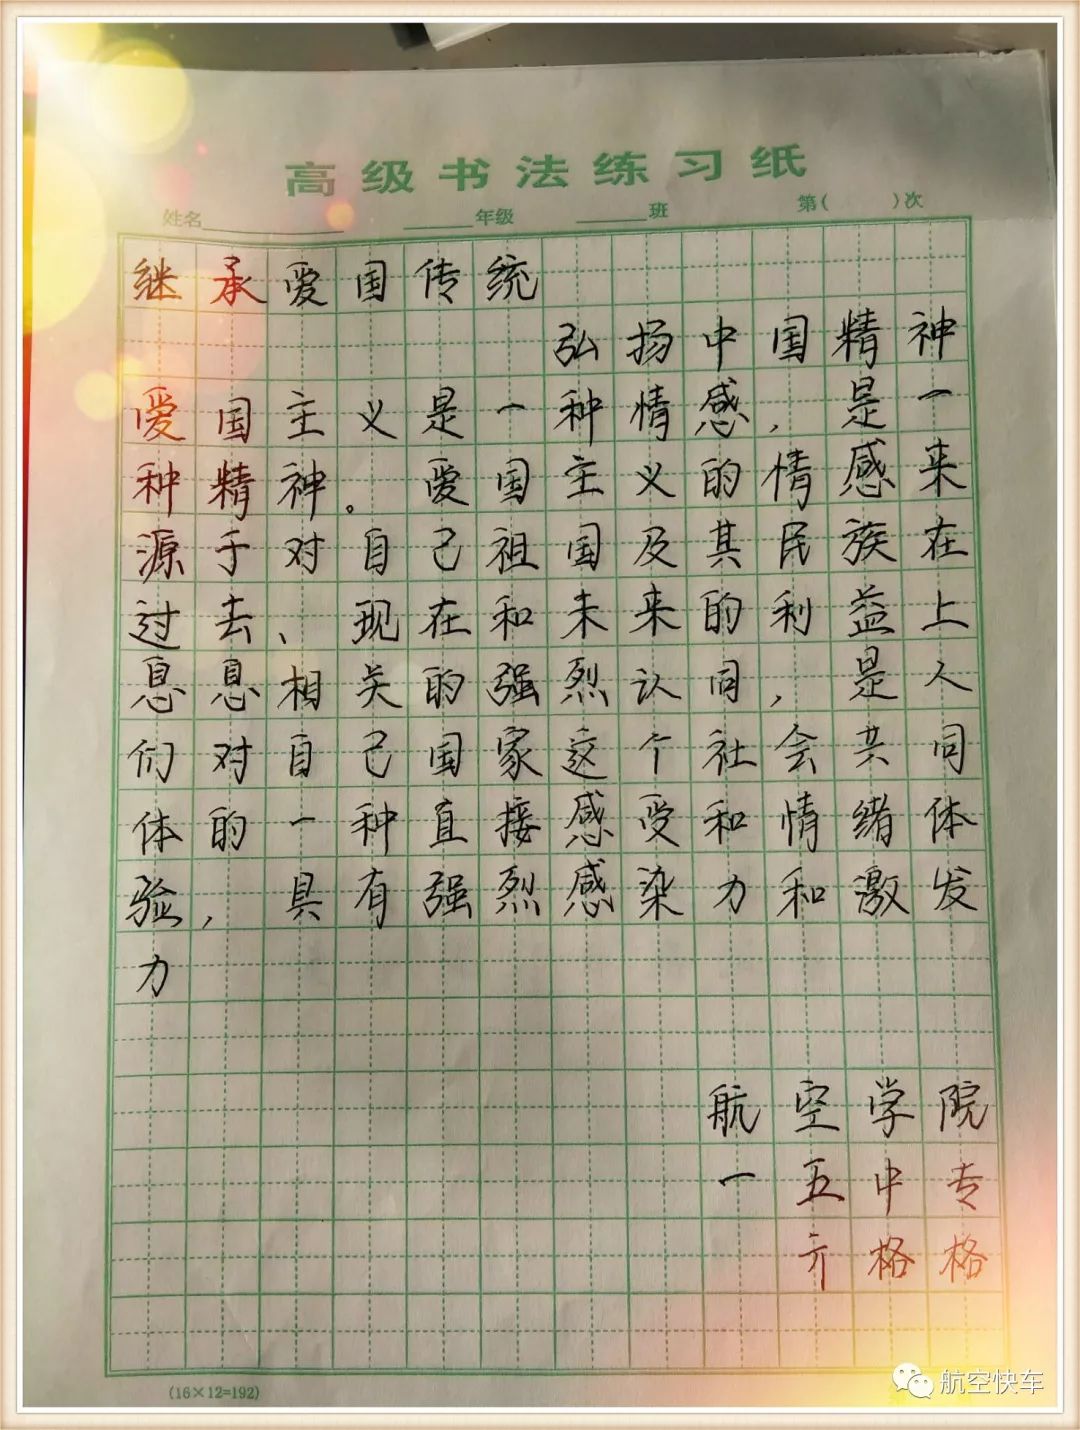 高级书法练习纸
姓名 年级 班 第( )次
继承爱国传统
弘扬中国精神
爱国主义是一种情感，是一
种精神。爱国主义的情感来
源于对自己祖国及其民族在
过去、现在和未来的利益上
息息相关的强烈认同，是人
们对自己国家这个社会共同
体的一种直接感受和情绪体
验，具有强烈感染力和激发
力
航空学院
一五中专
亓格格
(16×12=192)
航空快车